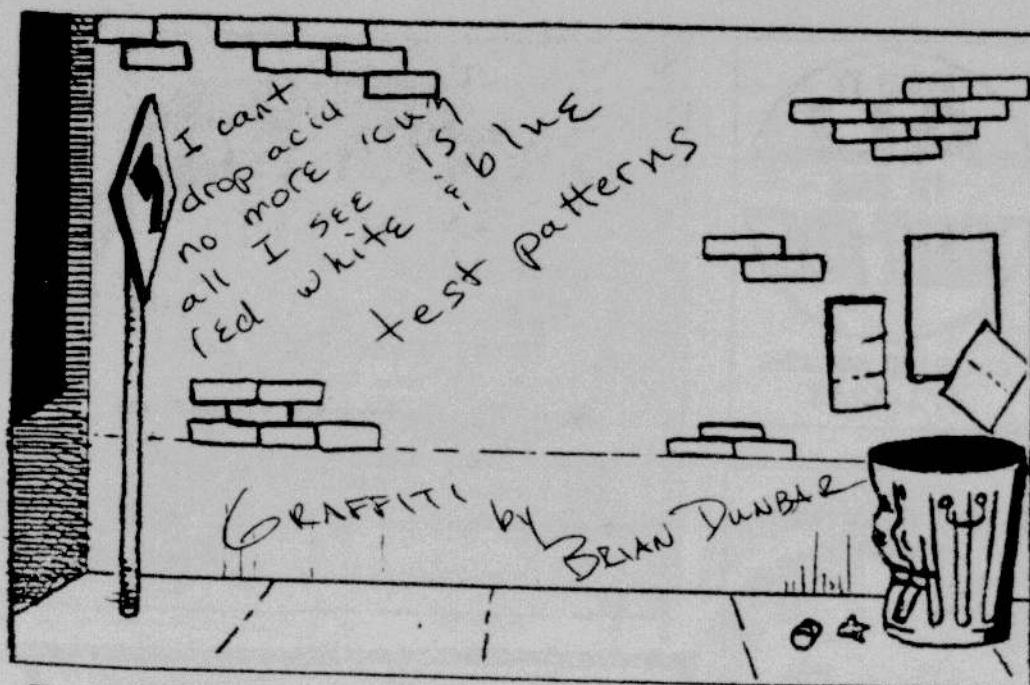 I cant
drop acid
no more 'cuz
all I see is
red white & blue
test patterns
GRAFFITI by BRIAN DUNBAR